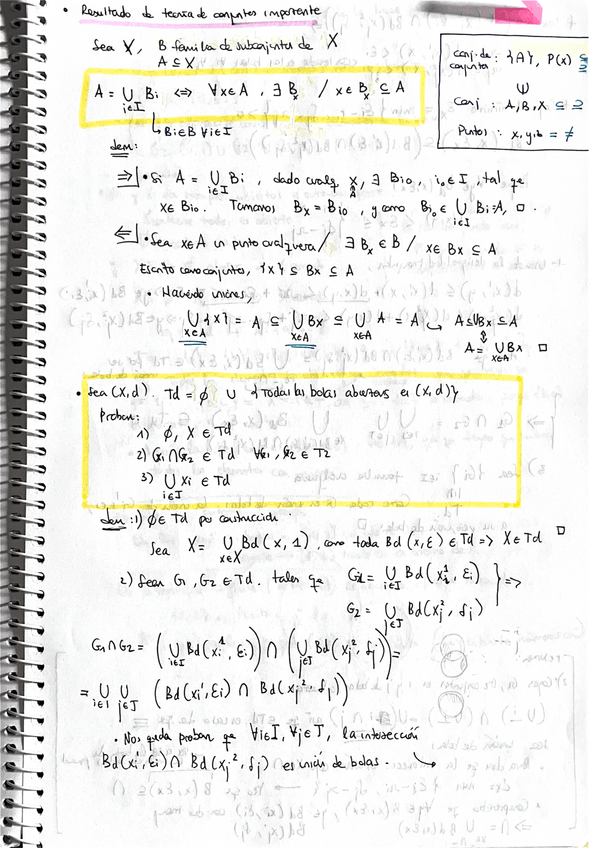 • Resultado de teoría de conjuntos importante
Sea X, B familia de subconjuntos de X
A ⊆ X
A = ∪ Bi ⟺ ∀x∈A, ∃ Bx / x∈Bx ⊆ A
i∈I
↳ Bi∈B ∀i∈I
conj. de conjuntos : {A}, P(X) ⊆ ⊇
Ψ
Conj : A, B, X ⊆ ⊇
Puntos : x, y, b = ≠
dem:
⇒| • Si A = ∪ Bi, dado cualq x, ∃ Bio, io∈I, tal que
i∈I A
x∈ Bio. Tomamos Bx = Bio, y como Bio ∈ ∪ Bi = A, □.
i∈I
⇐| • Sea x∈A un punto cualquiera / ∃ Bx ∈ B / x∈ Bx ⊆ A
Escrito como conjunto, {x} ⊆ Bx ⊆ A
• Haciendo uniones,
∪ {x} = A ⊆ ∪ Bx ⊆ ∪ A = A ↝ A ⊆ ∪Bx ⊆ A
x∈A x∈A x∈A ⇕
A = ∪ Bx □
x∈A
• Sea (X, d). Td = ∅ ∪ {Todas las bolas abiertas en (X, d)}
Probar:
1) ∅, X ∈ Td
2) G1 ∩ G2 ∈ Td ∀G1, G2 ∈ T2
3) ∪ Xi ∈ Td
i∈I
dem: 1) ∅ ∈ Td por construcción.
Sea X = ∪ Bd (x, 1), como toda Bd (x, ε) ∈ Td ⇒ X ∈ Td □
x∈X
2) Sean G1, G2 ∈ Td. tales que G1 = ∪ Bd (xi¹, εi) } ⇒
i∈I
G2 = ∪ Bd (xj², δj)
j∈J
G1 ∩ G2 = (∪ Bd (xi¹, εi)) ∩ (∪ Bd (xj², δj)) =
i∈I j∈J
= ∪ ∪ (Bd (xi¹, εi) ∩ Bd (xj², δj))
i∈I j∈J
• Nos queda probar que ∀i∈I, ∀j∈J, la intersección
Bd (xi¹, εi) ∩ Bd (xj², δj) es unión de bolas. →